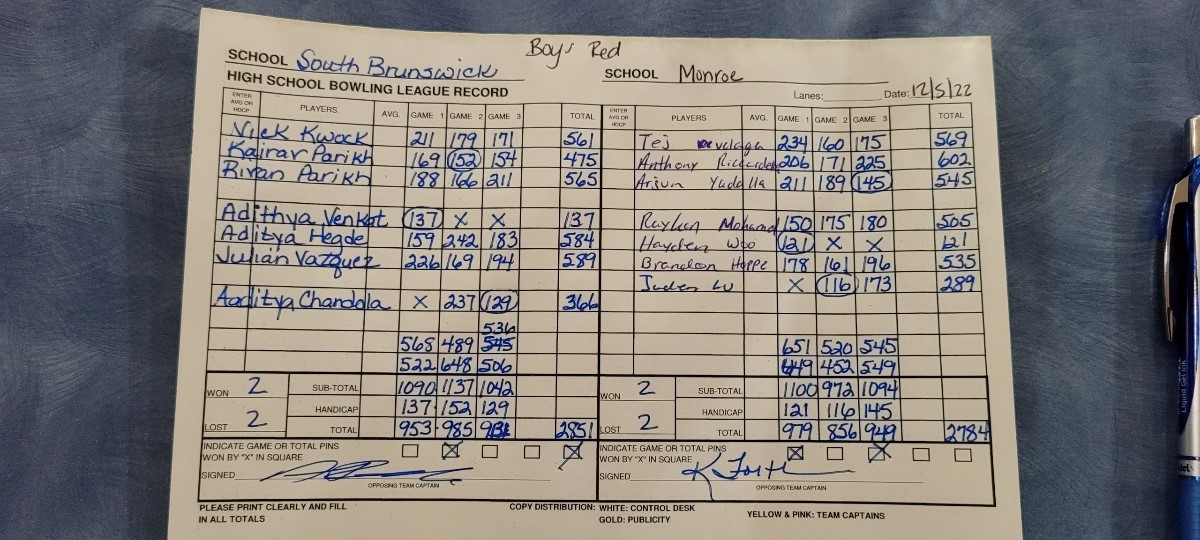 Boys Red
SCHOOL South Brunswick SCHOOL Monroe
HIGH SCHOOL BOWLING LEAGUE RECORD Lanes: Date: 12/5/22
ENTER AVG OR HDCP PLAYERS AVG. GAME 1 GAME 2 GAME 3 TOTAL ENTER AVG OR HDCP PLAYERS AVG. GAME 1 GAME 2 GAME 3 TOTAL
Nick Kwock 211 179 171 561 Tej 234 160 175 569
Kairav Parikh 169 152 154 475 Anthony 206 171 225 602
Rivan Parikh 188 166 211 565 Arjun Yadalla 211 189 145 545
Adithya Venkat 137 X X 137 Rayhan Mohamed 150 175 180 505
Aditya Hegde 159 242 183 584 Hayden Woo 121 X X 121
Julian Vazquez 226 169 194 589 Brandon Hoppe 178 161 196 535
Jaden Lu X 116 173 289
Aaditya Chandola X 237 129 366
536
568 489 545 651 520 545
522 648 506 449 452 549
WON 2 SUB-TOTAL 1090 1137 1042 WON 2 SUB-TOTAL 1100 972 1094
HANDICAP 137 152 129 HANDICAP 121 116 145
LOST 2 TOTAL 953 985 2851 LOST 2 TOTAL 979 856 949 2784
INDICATE GAME OR TOTAL PINS INDICATE GAME OR TOTAL PINS
WON BY "X" IN SQUARE X X WON BY "X" IN SQUARE X X
SIGNED SIGNED K Forte
OPPOSING TEAM CAPTAIN OPPOSING TEAM CAPTAIN
PLEASE PRINT CLEARLY AND FILL COPY DISTRIBUTION: WHITE: CONTROL DESK YELLOW & PINK: TEAM CAPTAINS
IN ALL TOTALS GOLD: PUBLICITY
Liquid Gel Ink